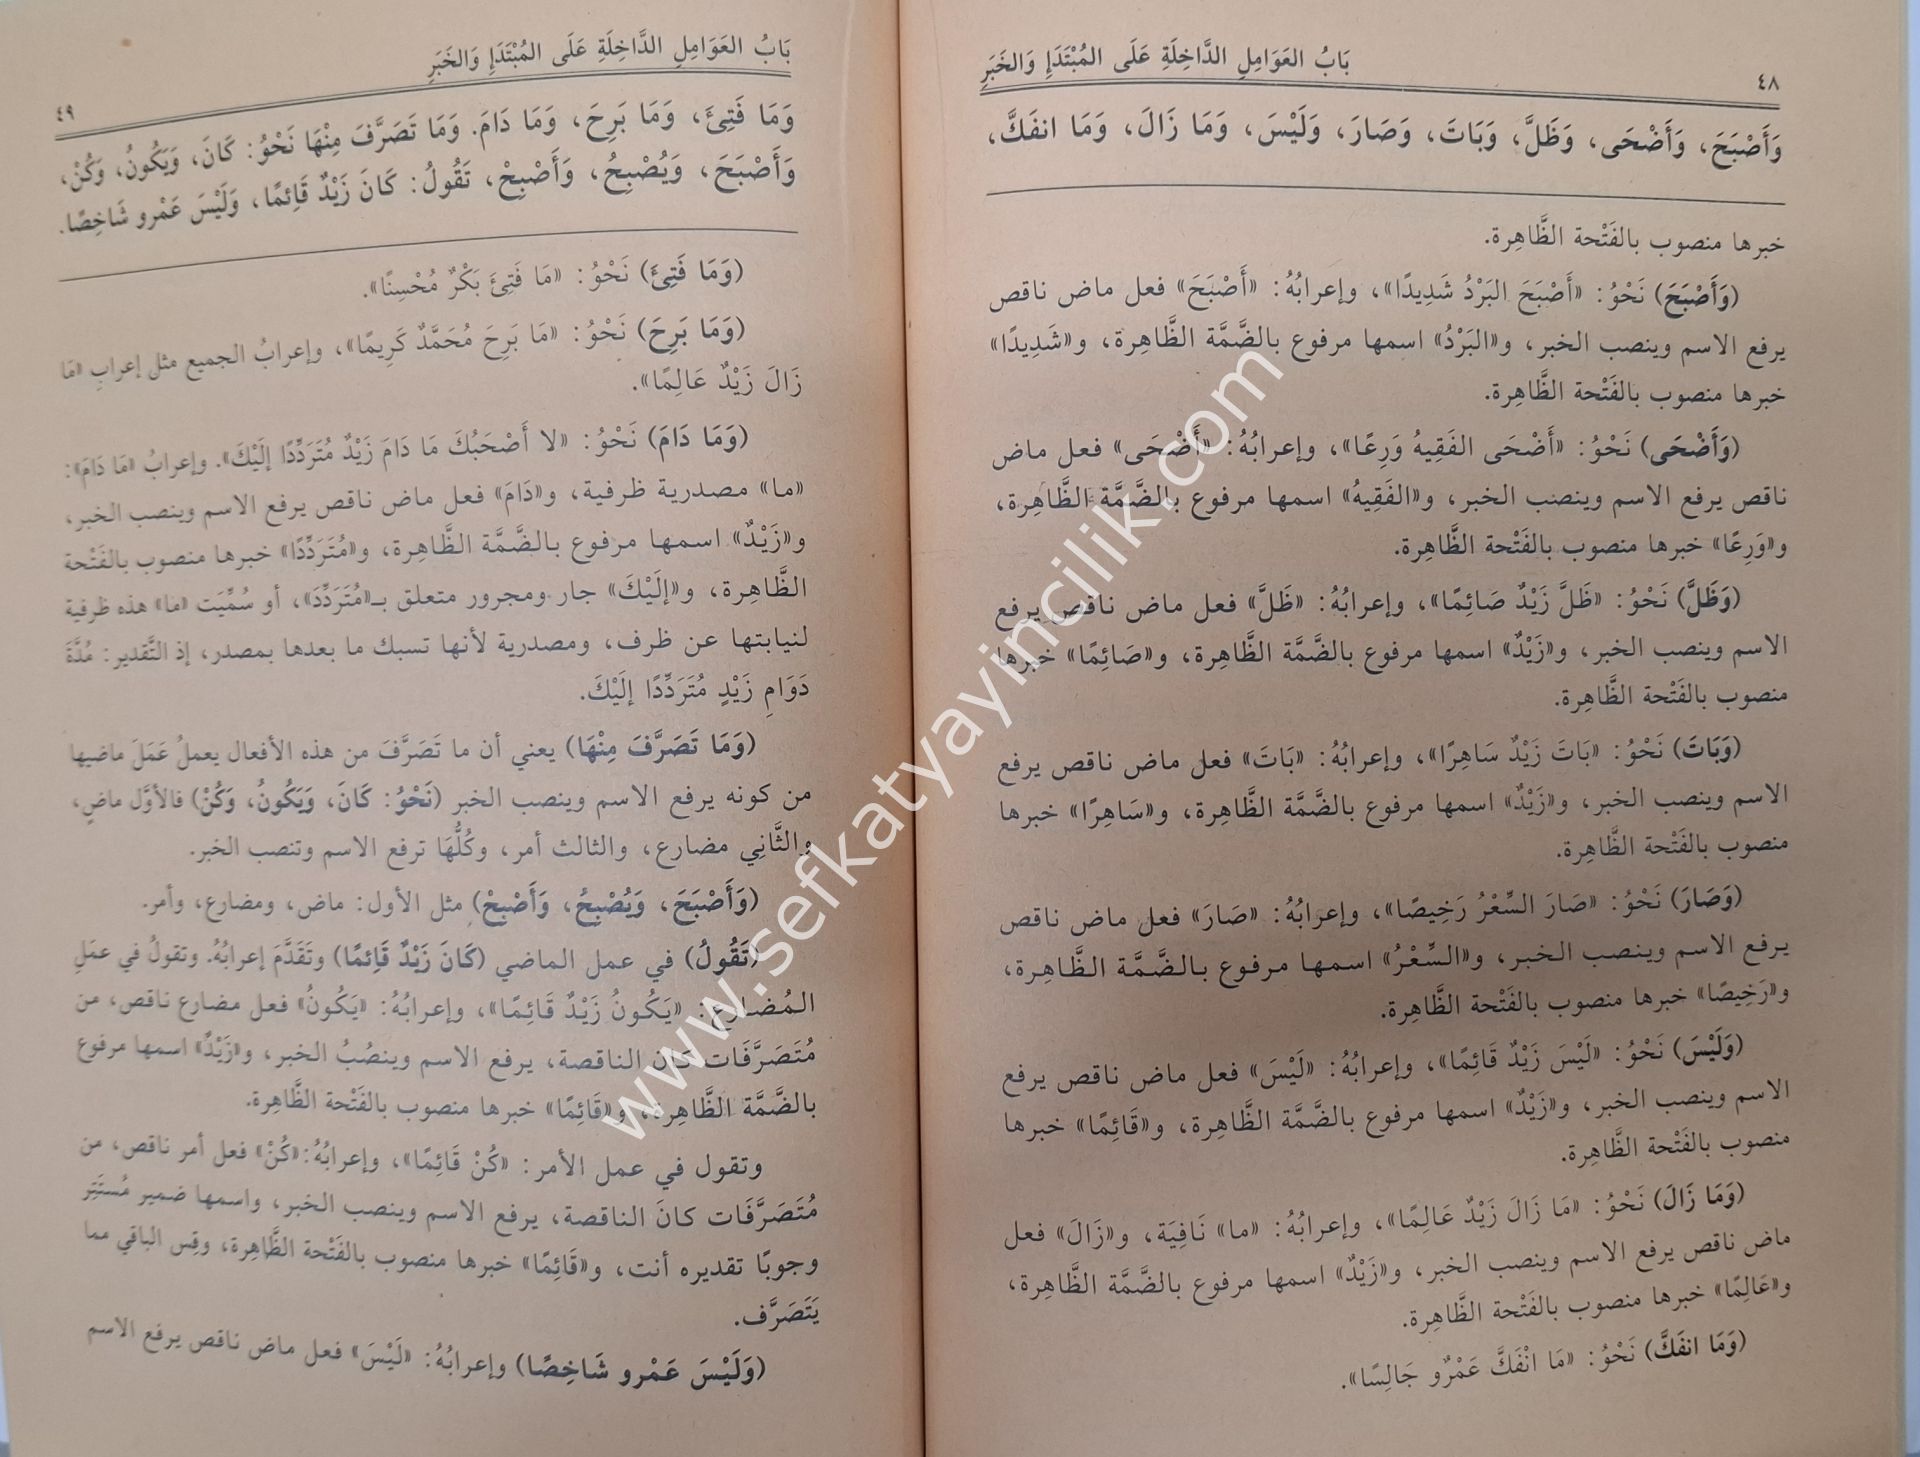 ٤٨
بَابُ العَوَامِلِ الدَّاخِلَةِ عَلَى المُبْتَدَإِ وَالخَبَرِ
وَأَصْبَحَ، وَأَضْحَى، وَظَلَّ، وَبَاتَ، وَصَارَ، وَلَيْسَ، وَمَا زَالَ، وَمَا انفَكَّ،
خبرها منصوب بالفَتْحة الظَّاهِرة.
(وَأَصْبَحَ) نَحْوُ: «أَصْبَحَ البَرْدُ شَدِيدًا»، وإعرابُهُ: «أَصْبَحَ» فعل ماض ناقص
يرفع الاسم وينصب الخبر، و«البَرْدُ» اسمها مرفوع بالضَّمَّة الظَّاهِرة، و«شَدِيدًا»
خبرها منصوب بالفَتْحة الظَّاهِرة.
(وَأَضْحَى) نَحْوُ: «أَضْحَى الفَقِيهُ وَرِعًا»، وإعرابُهُ: «أَضْحَى» فعل ماض
ناقص يرفع الاسم وينصب الخبر، و«الفَقِيهُ» اسمها مرفوع بالضَّمَّة الظَّاهِرة،
و«وَرِعًا» خبرها منصوب بالفَتْحة الظَّاهِرة.
(وَظَلَّ) نَحْوُ: «ظَلَّ زَيْدٌ صَائِمًا»، وإعرابُهُ: «ظَلَّ» فعل ماض ناقص يرفع
الاسم وينصب الخبر، و«زَيْدٌ» اسمها مرفوع بالضَّمَّة الظَّاهِرة، و«صَائِمًا» خبرها
منصوب بالفَتْحة الظَّاهِرة.
(وَبَاتَ) نَحْوُ: «بَاتَ زَيْدٌ سَاهِرًا»، وإعرابُهُ: «بَاتَ» فعل ماض ناقص يرفع
الاسم وينصب الخبر، و«زَيْدٌ» اسمها مرفوع بالضَّمَّة الظَّاهِرة، و«سَاهِرًا» خبرها
منصوب بالفَتْحة الظَّاهِرة.
(وَصَارَ) نَحْوُ: «صَارَ السِّعْرُ رَخِيصًا»، وإعرابُهُ: «صَارَ» فعل ماض ناقص
يرفع الاسم وينصب الخبر، و«السِّعْرُ» اسمها مرفوع بالضَّمَّة الظَّاهِرة،
و«رَخِيصًا» خبرها منصوب بالفَتْحة الظَّاهِرة.
(وَلَيْسَ) نَحْوُ: «لَيْسَ زَيْدٌ قَائِمًا»، وإعرابُهُ: «لَيْسَ» فعل ماض ناقص يرفع
الاسم وينصب الخبر، و«زَيْدٌ» اسمها مرفوع بالضَّمَّة الظَّاهِرة، و«قَائِمًا» خبرها
منصوب بالفَتْحة الظَّاهِرة.
(وَمَا زَالَ) نَحْوُ: «مَا زَالَ زَيْدٌ عَالِمًا»، وإعرابُهُ: «ما» نَافِيَة، و«زَالَ» فعل
ماض ناقص يرفع الاسم وينصب الخبر، و«زَيْدٌ» اسمها مرفوع بالضَّمَّة الظَّاهِرة،
و«عَالِمًا» خبرها منصوب بالفَتْحة الظَّاهِرة.
(وَمَا انفَكَّ) نَحْوُ: «مَا انْفَكَّ عَمْرٌو جَالِسًا».
بَابُ العَوَامِلِ الدَّاخِلَةِ عَلَى المُبْتَدَإِ وَالخَبَرِ
٤٩
وَمَا فَتِئَ، وَمَا بَرِحَ، وَمَا دَامَ. وَمَا تَصَرَّفَ مِنْهَا نَحْوُ: كَانَ، وَيَكُونُ، وَكُنْ،
وَأَصْبَحَ، وَيُصْبِحُ، وَأَصْبِحْ، تَقُولُ: كَانَ زَيْدٌ قَائِمًا، وَلَيْسَ عَمْرو شَاخِصًا.
(وَمَا فَتِئَ) نَحْوُ: «مَا فَتِئَ بَكْرٌ مُحْسِنًا».
(وَمَا بَرِحَ) نَحْوُ: «مَا بَرِحَ مُحَمَّدٌ كَرِيمًا»، وإعرابُ الجميع مثل إعرابِ «مَا
زَالَ زَيْدٌ عَالِمًا».
(وَمَا دَامَ) نَحْوُ: «لا أَصْحَبُكَ مَا دَامَ زَيْدٌ مُتَرَدِّدًا إلَيْكَ». وإعرابُ «مَا دَامَ»:
«ما» مصدرية ظرفية، و«دَامَ» فعل ماض ناقص يرفع الاسم وينصب الخبر،
و«زَيْدٌ» اسمها مرفوع بالضَّمَّة الظَّاهِرة، و«مُتَرَدِّدًا» خبرها منصوب بالفَتْحة
الظَّاهِرة، و«إلَيْكَ» جار ومجرور متعلق بـ«مُتَرَدِّدَ»، أو سُمِّيَت «ما» هذه ظرفية
لنيابتها عن ظرف، ومصدرية لأنها تسبك ما بعدها بمصدر، إذ التَّقدير: مُدَّةَ
دَوَامِ زَيْدٍ مُتَرَدِّدًا إلَيْكَ.
(وَمَا تَصَرَّفَ مِنْهَا) يعني أن ما تَصَرَّفَ من هذه الأفعال يعملُ عَمَلَ ماضيها
من كونه يرفع الاسم وينصب الخبر (نَحْوُ: كَانَ، وَيَكُونُ، وَكُنْ) فالأوَّل ماضٍ،
والثَّانِي مضارع، والثالث أمر، وكُلُّهَا ترفع الاسم وتنصب الخبر.
(وَأَصْبَحَ، وَيُصْبِحُ، وَأَصْبِحْ) مثل الأول: ماض، ومضارع، وأمر.
(تَقُولُ) في عمل الماضي (كَانَ زَيْدٌ قَائِمًا) وتَقَدَّمَ إعرابُهُ. وتقولُ في عملِ
المُضارِع: «يَكُونُ زَيْدٌ قَائِمًا»، وإعرابُهُ: «يَكُونُ» فعل مضارع ناقص، من
مُتَصَرَّفَات كانَ الناقصة، يرفع الاسم وينصُبُ الخبر، و«زَيْدٌ» اسمها مرفوع
بالضَّمَّة الظَّاهِرة، و«قَائِمًا» خبرها منصوب بالفَتْحة الظَّاهِرة.
وتقول في عمل الأمر: «كُنْ قَائِمًا»، وإعرابُهُ: «كُنْ» فعل أمر ناقص، من
مُتَصَرَّفَات كانَ الناقصة، يرفع الاسم وينصب الخبر، واسمها ضمير مُستَتِر
وجوبًا تقديره أنت، و«قَائِمًا» خبرها منصوب بالفَتْحة الظَّاهِرة، وقِس الباقي مما
يَتَصَرَّف.
(وَلَيْسَ عَمْرو شَاخِصًا) وإعرابُهُ: «لَيْسَ» فعل ماض ناقص يرفع الاسم
www.sefkatyayincilik.com